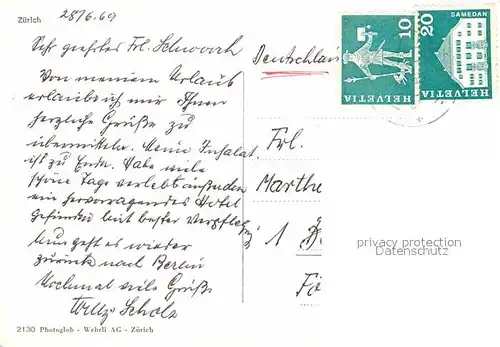 Zürich
28/6.69
Sehr geehrtes Frl. Schwarch
Von meinem Urlaub
erlaube ich mir Ihnen
herzliche Grüße zu
übermitteln. Meine
ist zu Ende. Habe viele
schöne Tage verlebt
ein hervorragendes Hotel
gefunden mit bester Verpfleg.
Nun geht es wieder
zurück nach Berlin
Nochmal viele Grüße
Willy Scholz
2130 Photoglob - Wehrli AG - Zürich
Deutschlan
10
HELVETIA
20
SAMEDAN
HELVETIA
Frl.
Marthe
1
privacy protection
Datenschutz
Fö